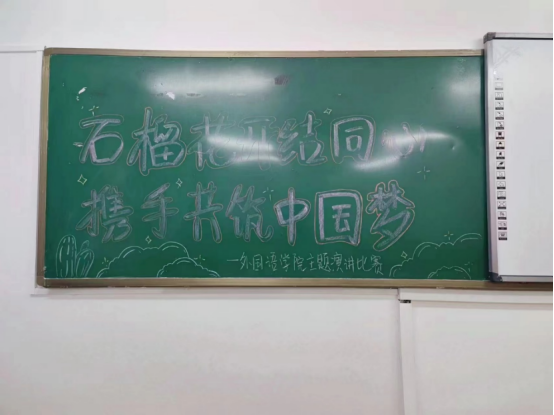 石榴花开结同心
携手共筑中国梦
—外国语学院主题演讲比赛